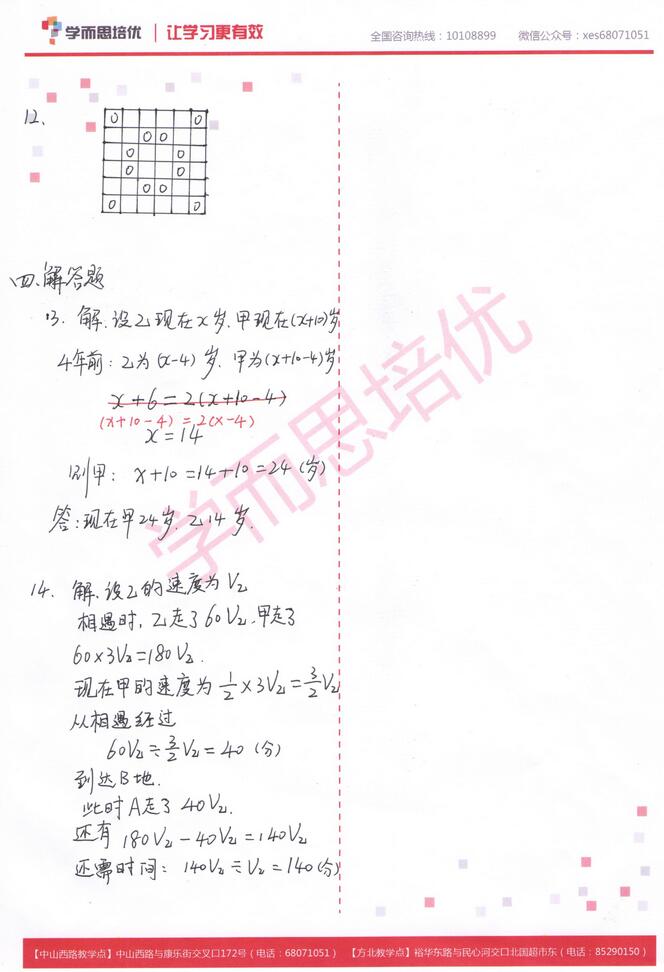 学而思培优 | 让学习更有效
全国咨询热线：10108899 微信公众号：xes68071051
12、
0 0
0 0
0 0
0 0
0 0
0 0
四、解答题
13. 解、设乙现在x岁、甲现在(x+10)岁
4年前：乙为(x-4)岁、甲为(x+10-4)岁
x+6=2(x+10-4)
(x+10-4)=2(x-4)
x=14
则甲：x+10=14+10=24(岁)
答：现在甲24岁、乙14岁.
14. 解、设乙的速度为V乙
相遇时，乙走了60V乙、甲走了
60×3V乙=180V乙.
现在甲的速度为 1/2 ×3V乙= 3/2 V乙
从相遇经过
60V乙÷ 3/2 V乙=40(分)
到达B地.
此时A走了40V乙.
还有 180V乙-40V乙=140V乙
还需时间：140V乙÷V乙=140(分)
学而思培优
【中山西路教学点】中山西路与康乐街交叉口172号（电话：68071051） 【方北教学点】裕华东路与民心河交口北国超市东（电话：85290150）